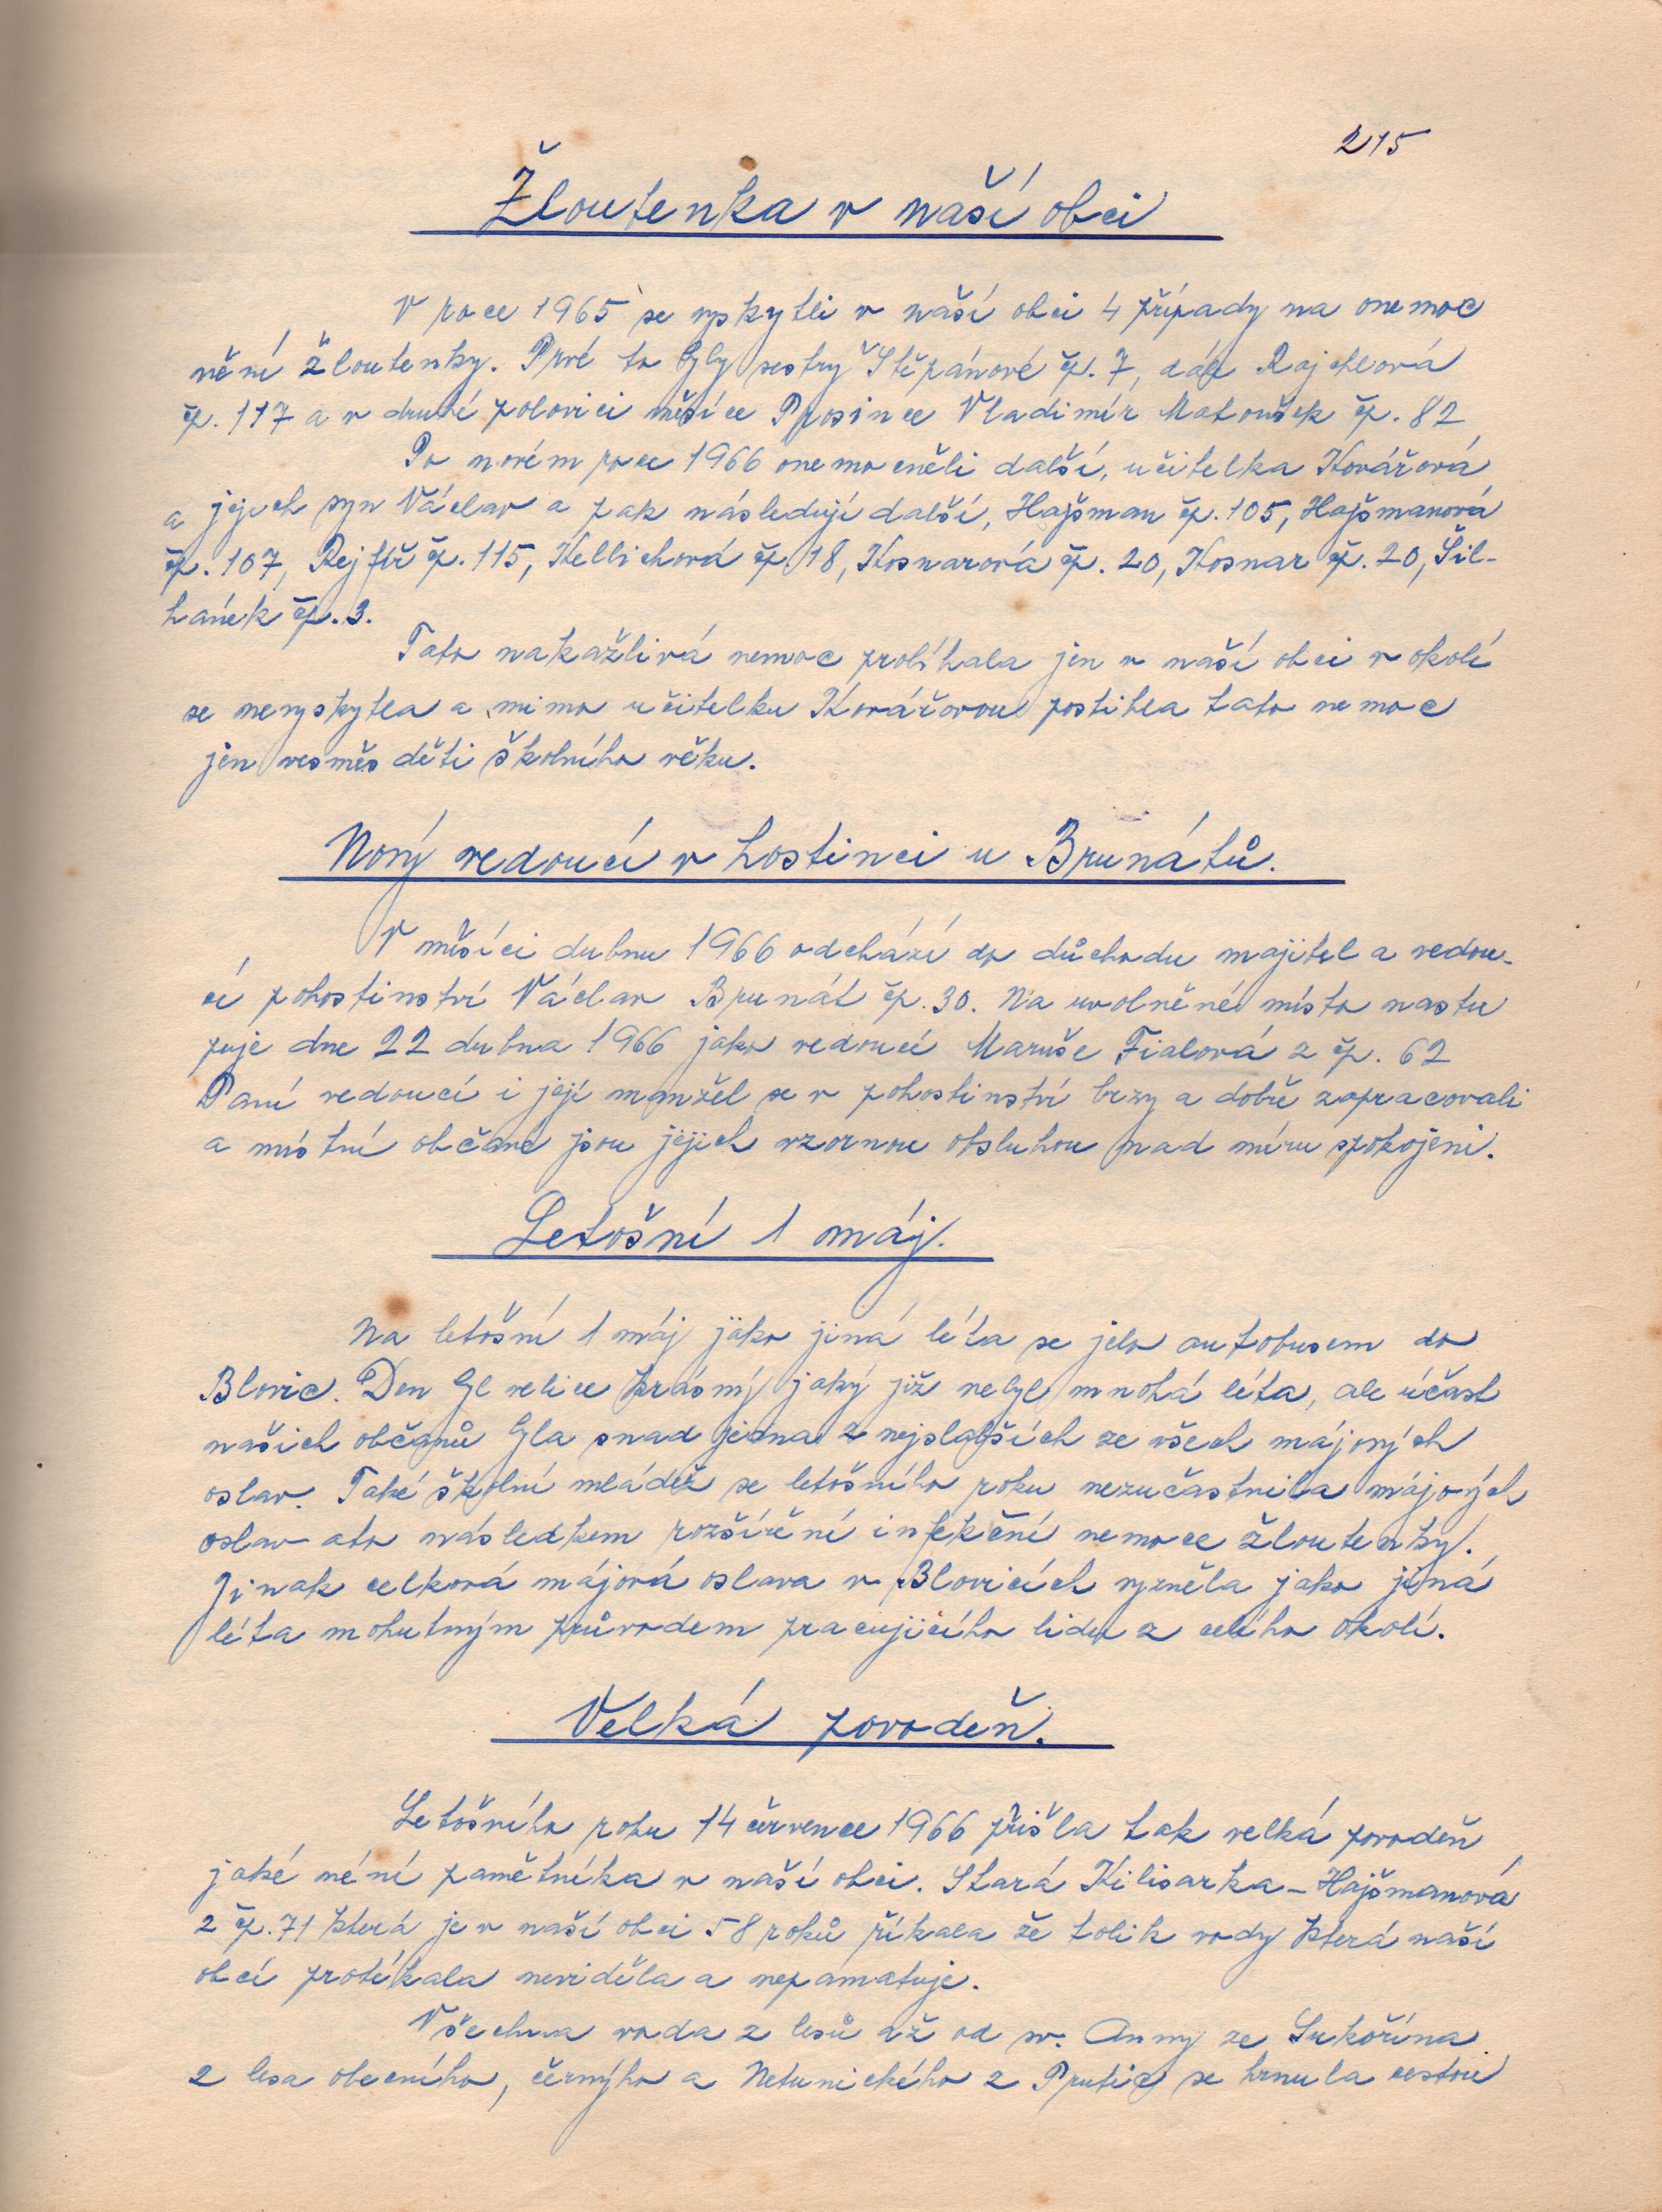 215
Žloutenka v naší obci
V roce 1965 se vyskytli v naší obci 4 případy na onemoc
nění žloutenky. Prvé to byly sestry Štěpánové čp. 7, dále Rajchlová
čp. 117 a v druhé polovici měsíce Prosince Vladimír Matoušek čp. 82
Po novém roce 1966 onemocněli další, učitelka Kovářová
a jejich syn Václav a pak následují další, Hajšman čp. 105, Hajšmanová
čp. 107, Rejfíř čp. 115, Kellichová čp. 18, Kosnarová čp. 20, Kosnar čp. 20, Šil-
hánek čp. 3.
Tato nakažlivá nemoc probíhala jen v naší obci v okolí
se nevyskytla a mimo učitelku Kovářovou postihla tato nemoc
jen vesměs děti školního věku.
Nový vedoucí v hostinci u Brunátů.
V měsíci dubnu 1966 odchází do důchodu majitel a vedou-
cí pohostinství Václav Brunát čp. 30. Na uvolněné místo nastu
puje dne 22 dubna 1966 jako vedoucí Maruše Fialová z čp. 62
Paní vedoucí i její manžel se v pohostinství brzy a dobře zapracovali
a místní občané jsou jejich vzornou obsluhou nad míru spokojeni.
Letošní 1 máj.
Na letošní 1 máj jako jiná léta se jelo autobusem do
Blovic. Den byl velice krásný jaký již nebyl mnohá léta, ale účast
našich občanů byla snad jedna z nejslabších ze všech májových
oslav. Také školní mládež se letošního roku nezúčastnila májových
oslav ato následkem rozšíření infekční nemoce žloutenky.
Jinak celková májová oslava v Blovicích vyzněla jako jiná
léta mohutným průvodem pracujícího lidu z celého okolí.
Velká povodeň.
Letošního roku 14 července 1966 přišla tak velká povodeň
jaké néní pamětníka v naší obci. Stará Kilisarka - Hajšmanová
z čp. 71 která je v naší obci 58 roků říkala že tolik vody která naší
obcí protékala neviděla a nepamatuje.
Všechna voda z lesů až od sv. Anny ze Sukořína
z lesa obecního, černýho a Netunického z Prutic se hrnula cestou